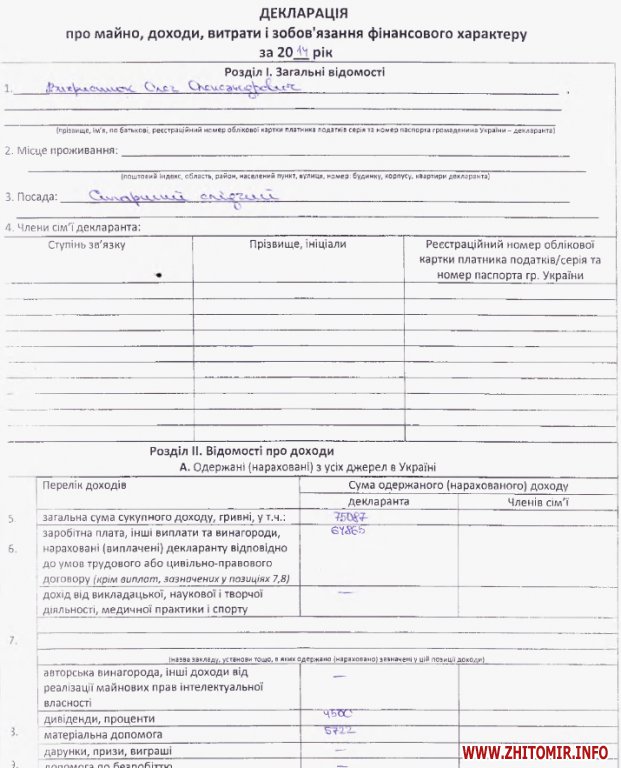 ДЕКЛАРАЦІЯ
про майно, доходи, витрати і зобов'язання фінансового характеру
за 2014 рік
Розділ І. Загальні відомості
1. Олег Олександрович
(прізвище, ім'я, по батькові, реєстраційний номер облікової картки платника податків серія та номер паспорта громадянина України – декларанта)
2. Місце проживання:
(поштовий індекс, область, район, населений пункт, вулиця, номер: будинку, корпусу, квартири декларанта)
3. Посада: Старший слідчий
4. Члени сім'ї декларанта:
Ступінь зв'язку
Прізвище, ініціали
Реєстраційний номер облікової
картки платника податків/серія та
номер паспорта гр. України
Розділ ІІ. Відомості про доходи
А. Одержані (нараховані) з усіх джерел в Україні
Перелік доходів
Сума одержаного (нарахованого) доходу
декларанта
Членів сім'ї
5. загальна сума сукупного доходу, гривні, у т.ч.: 75087
6. заробітна плата, інші виплати та винагороди, 64865
нараховані (виплачені) декларанту відповідно
до умов трудового або цивільно-правового
договору (крім виплат, зазначених у позиціях 7,8)
дохід від викладацької, наукової і творчої —
діяльності, медичної практики і спорту
7.
(назва закладу, установи тощо, в яких одержано (нараховано) зазначені у цій позиції доходи)
авторська винагорода, інші доходи від —
реалізації майнових прав інтелектуальної
власності
дивіденди, проценти 4500
8. матеріальна допомога 5722
дарунки, призи, виграші —
9. допомога по безробіттю —
WWW.ZHITOMIR.INFO